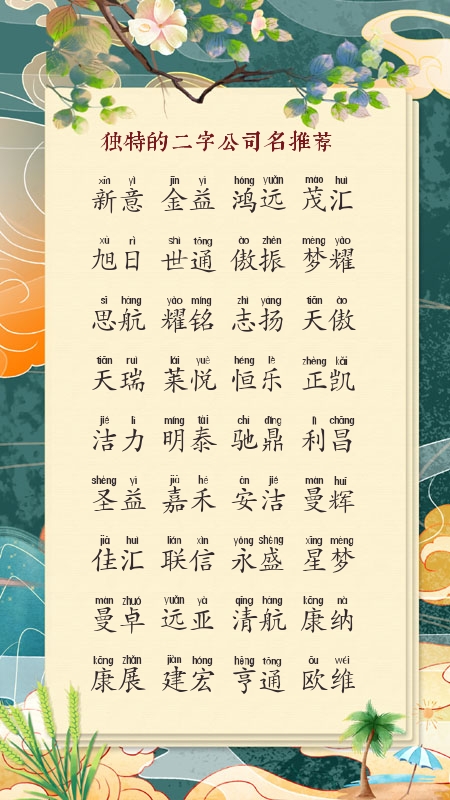 独特的二字公司名推荐
xīn yì jīn yì hóng yuǎn mào huì
新意 金益 鸿远 茂汇
xù rì shì tōng ào zhèn mèng yào
旭日 世通 傲振 梦耀
sī háng yào míng zhì yáng tiān ào
思航 耀铭 志扬 天傲
tiān ruì lái yuè héng lè zhèng kǎi
天瑞 莱悦 恒乐 正凯
jié lì míng tài chí dǐng lì chāng
洁力 明泰 驰鼎 利昌
shèng yì jiā hé ān jié màn huī
圣益 嘉禾 安洁 曼辉
jiā huì lián xìn yǒng shèng xīng mèng
佳汇 联信 永盛 星梦
màn zhuó yuǎn yà qīng háng kāng nà
曼卓 远亚 清航 康纳
kāng zhǎn jiàn hóng hēng tōng ōu wéi
康展 建宏 亨通 欧维